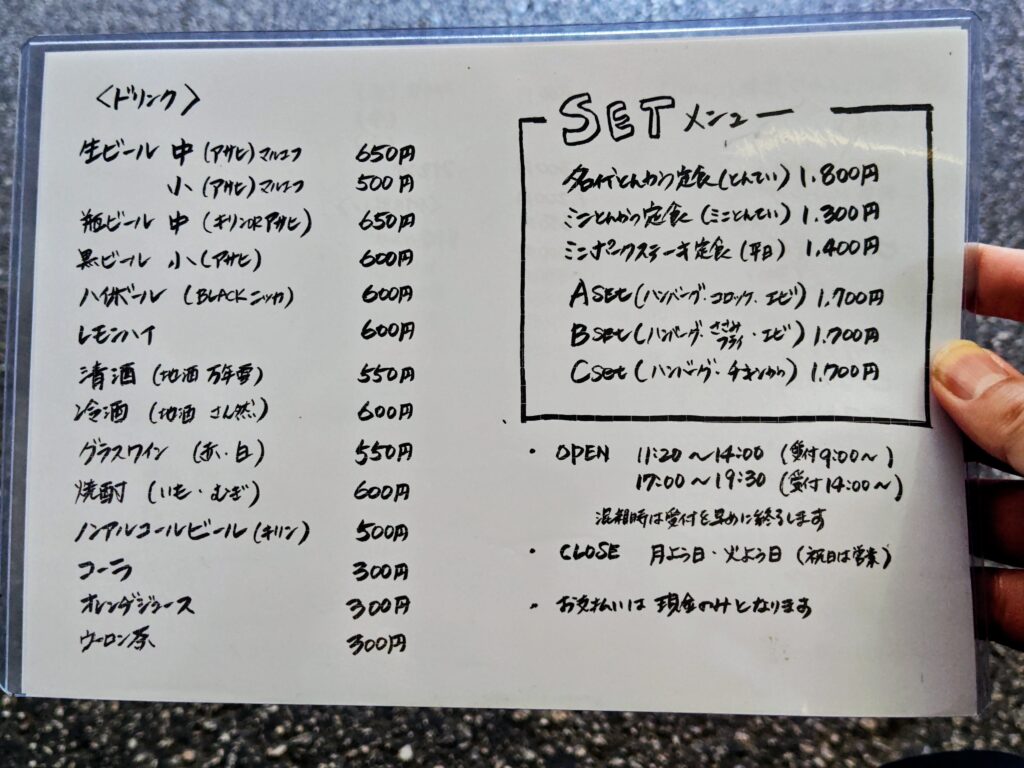 〈ドリンク〉
生ビール 中 (アサヒ) マルエフ 650円
小 (アサヒ) マルエフ 500円
瓶ビール 中 (キリンORアサヒ) 650円
黒ビール 小 (アサヒ) 600円
ハイボール (BLACKニッカ) 600円
レモンハイ 600円
清酒 (地酒 万年雪) 550円
冷酒 (地酒 さん然) 600円
グラスワイン (赤・白) 550円
焼酎 (いも・むぎ) 600円
ノンアルコールビール (キリン) 500円
コーラ 300円
オレンヂジュース 300円
ウーロン茶 300円
SET メニュー
名代とんかつ定食 (とんてい) 1.800円
ミニとんかつ定食 (ミニとんてい) 1.300円
ミニポークステーキ定食 (平日) 1.400円
Aset (ハンバーグ・コロッケ・エビ) 1.700円
Bset (ハンバーグ・ささみフライ・エビ) 1.700円
Cset (ハンバーグ・チキンから) 1.700円
・ OPEN 11:20〜14:00 (受付9:00〜)
17:00〜19:30 (受付14:00〜)
混雑時は受付を早めに終了します
・ CLOSE 月よう日・火よう日 (祝日は営業)
・ お支払いは 現金のみとなります